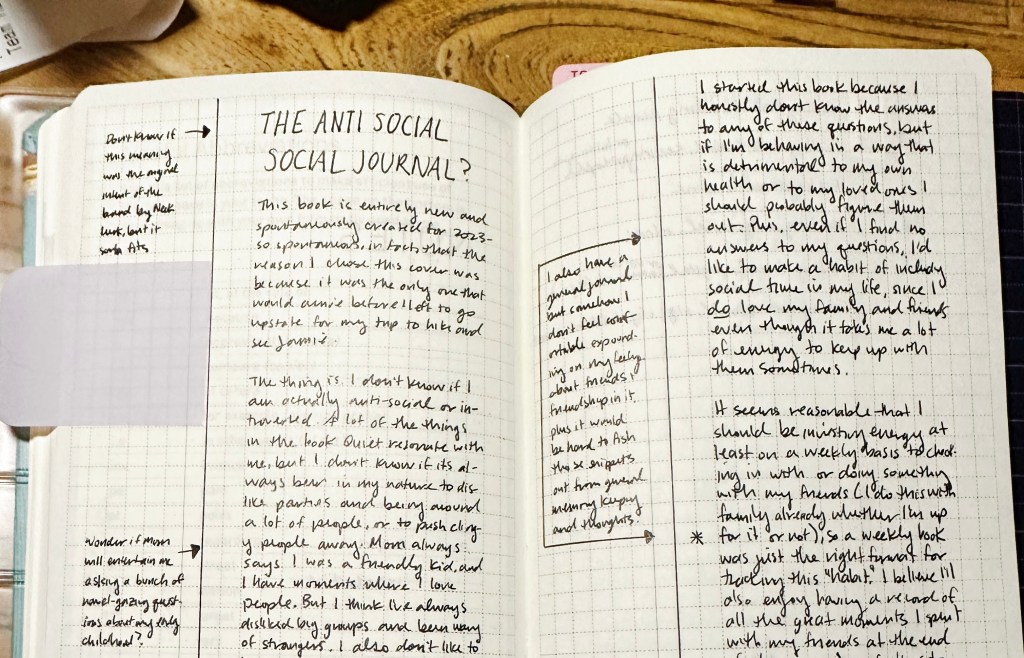 Don't know if
this meaning
was the original
intent of the
brand by Neek
Lurk, but it
sorta fits
THE ANTI SOCIAL
SOCIAL JOURNAL?
This book is entirely new and
spontaneously created for 2023-
so spontaneous, in fact, that the
reason I chose this cover was
because it was the only one that
would arrive before I left to go
upstate for my trip to hike and
see Jamie.
The thing is, I don't know if I
am actually anti-social or in-
troverted. A lot of the things
in the book Quiet resonate with
me, but I don't know if its al-
ways been in my nature to dis-
like parties and being around
a lot of people, or to push cling-
y people away. Mom always
says I was a friendly kid, and
I have moments where I love
people. But I think I've always
disliked big groups and been wary
of strangers. I also don't like to
Wonder if Mom
will entertain me
asking a bunch of
navel-gazing quest-
ions about my early
childhood?
I also have a
general journal
but somehow I
don't feel comf-
ortable expound-
ing on my feelings
about friends &
friendship in it.
plus it would
be hard to fish
those snippets
out from general
memory keeping
and thoughts.
I started this book because I
honestly don't know the answers
to any of these questions, but
if I'm behaving in a way that
is detrimental to my own
health or to my loved ones I
should probably figure them
out. Plus, even if I find no
answers to my questions, I'd
like to make a habit of including
social time in my life, since I
do love my family and friends
even though it takes me a lot
of energy to keep up with
them sometimes.
It seems reasonable that I
should be investing energy at
least on a weekly basis to check-
ing in with or doing something
with my friends (I do this with
family already whether I'm up
* for it or not), so a weekly book
was just the right format for
tracking this "habit." I believe I'll
also enjoy having a record of
all the great moments I spent
with my friends at the end